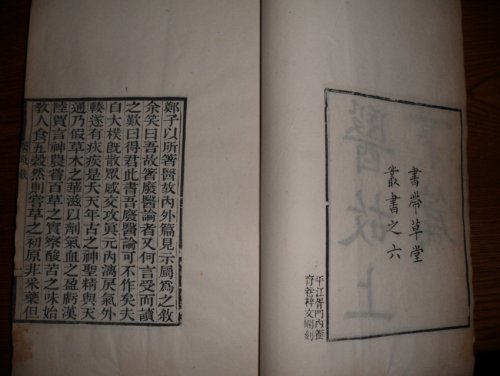 書帶草堂
叢書之六
平江胥門內養
育巷梓文閣刻
鄭子以所箸醫故內外篇見示屬爲之敘
余笑曰吾故箸廢醫論者又何言受而讀
之歎曰得君此書吾廢醫論可不作矣夫
自大樸既散眾感交攻真元內漓戾氣外
轃遂有疢疾是夭天年古之神聖精與天
通乃假草木之華滋以劑氣血之盈虧漢
陸賈言神農嘗百草之實察酸苦之味始
敎人食五穀然則嘗草之初原非采藥但